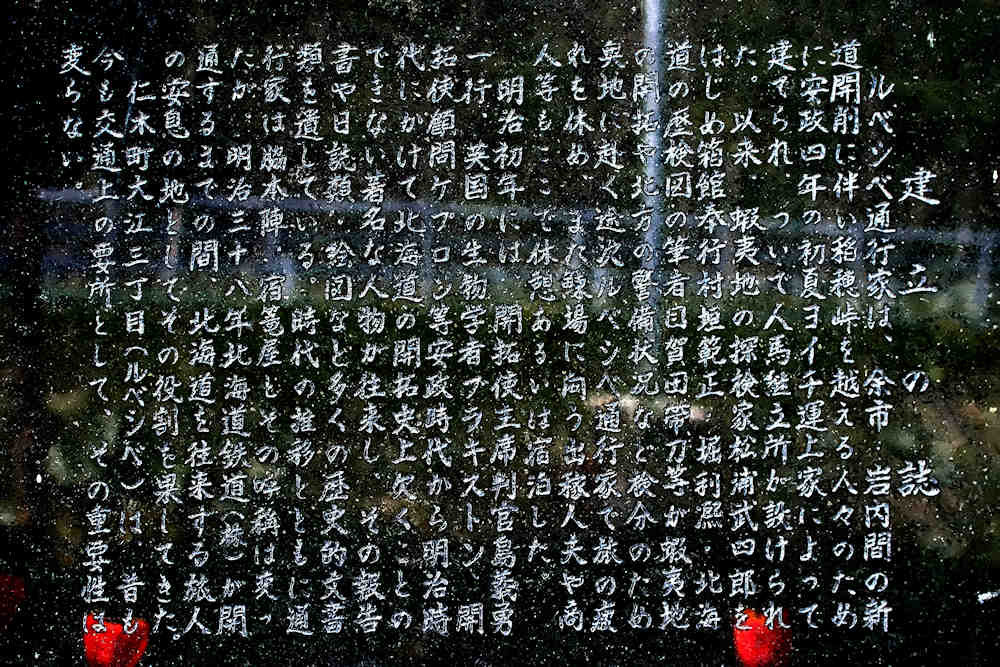 建立の誌
ルベシベ通行家は、余市・岩内間の新
道開削に伴い稲穂峠を越える人々のため
に安政四年の初夏ヨイチ運上家によって
建てられ、ついで人馬継立所が設けられ
た。以来、蝦夷地の探検家松浦武四郎を
はじめ箱館奉行村垣範正・堀利煕・北海
道の歴検図の筆者目賀田帯刀等が蝦夷地
の開拓や北方の警備状況など検分のため
奥地に赴く途次ルベシベ通行家で旅の疲
れを休め、また鰊場に向う出稼人夫や商
人等もここで休憩あるいは宿泊した。
明治初年には、開拓使主席判官島義勇
一行、英国の生物学者ブラキストン、開
拓使顧問ケプロン等安政時代から明治時
代にかけて北海道の開拓史上欠くことの
できない著名な人物が往来し、その報告
書や日誌類、絵図など多くの歴史的文書
類を遺している。時代の推移とともに通
行家は脇本陣、宿駕屋とその呼称は変っ
たが、明治三十八年北海道鉄道（株）が開
通するまでの間、北海道を往来する旅人
の安息の地としてその役割を果してきた。
仁木町大江三丁目（ルベシベ）は、昔も
今も交通上の要所として、その重要性は
変らない。